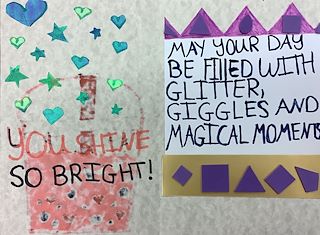 YOU SHINE
SO BRIGHT!
MAY YOUR DAY
BE FILLED WITH
GLITTER,
GIGGLES AND
MAGICAL MOMENTS